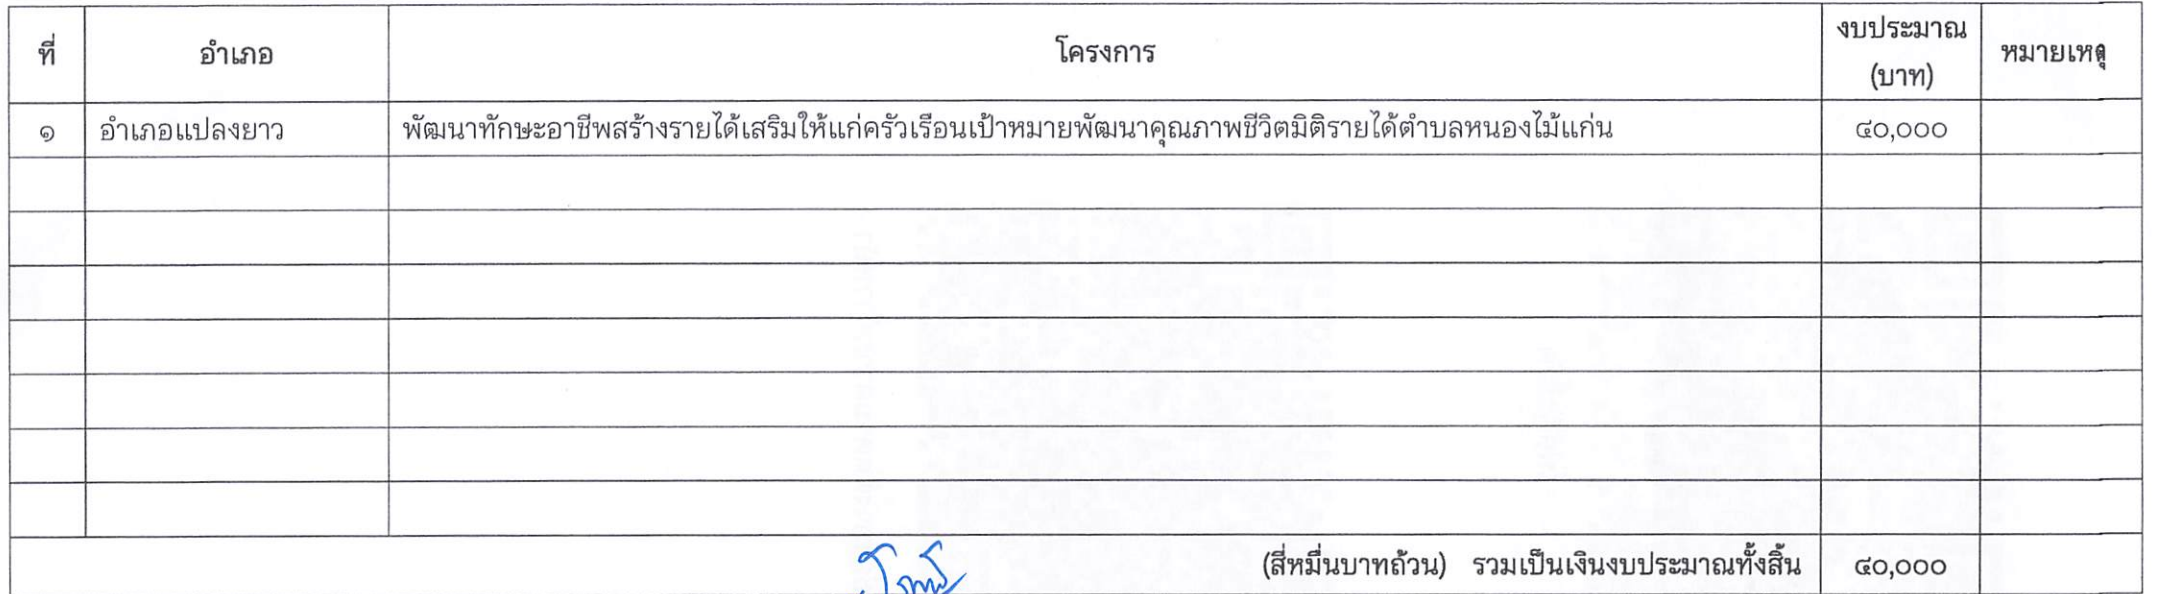 ที่ อำเภอ โครงการ งบประมาณ (บาท) หมายเหตุ
๑ อำเภอแปลงยาว พัฒนาทักษะอาชีพสร้างรายได้เสริมให้แก่ครัวเรือนเป้าหมายพัฒนาคุณภาพชีวิตมิติรายได้ตำบลหนองไม้แก่น ๔๐,๐๐๐
(สี่หมื่นบาทถ้วน) รวมเป็นเงินงบประมาณทั้งสิ้น ๔๐,๐๐๐